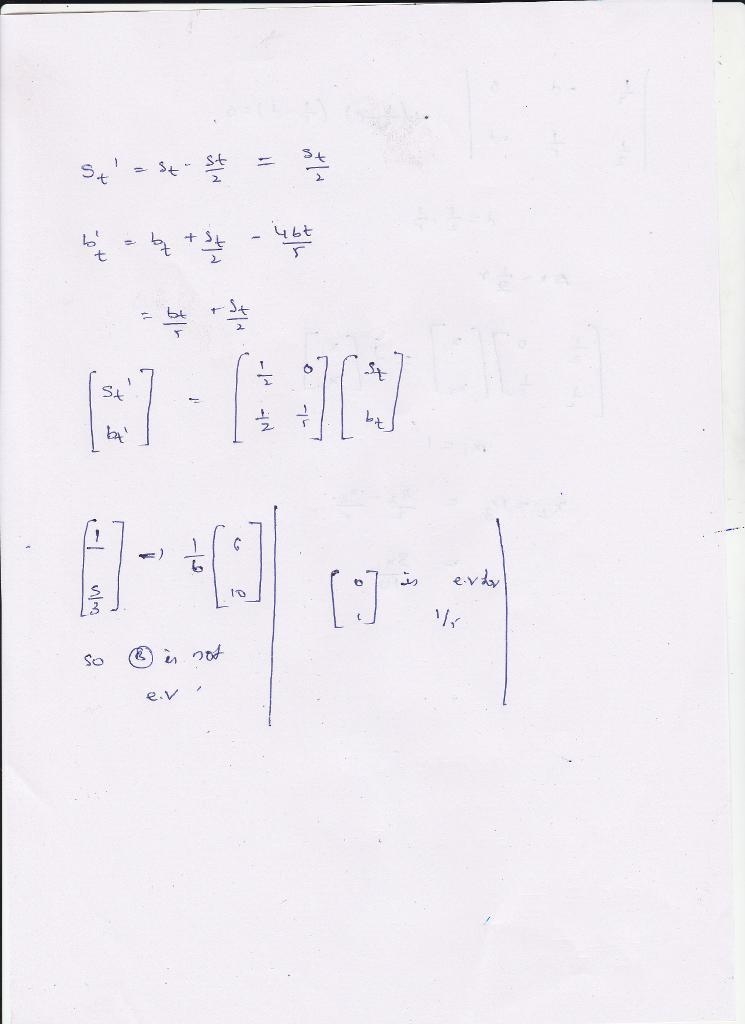 St' = St - St/2 = St/2
bt' = bt + St/2 - 4bt/5
= bt/5 + St/2
[St' bt'] = [1/2 0 1/2 1/5] [St bt]
[1 5/3] => 1/6 [6 10]
so Ⓑ is not
e.v
[0 1] is e.v for
1/5